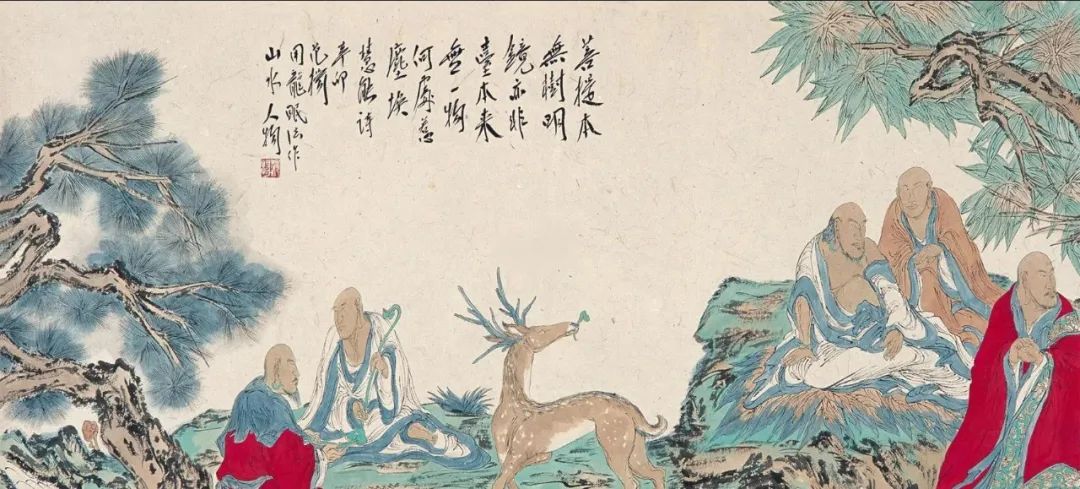 菩提本
無樹明
鏡亦非
臺本来
無一物
何處惹
塵埃
慧能詩
辛卯
范揚
用龍眠法作
山水人物